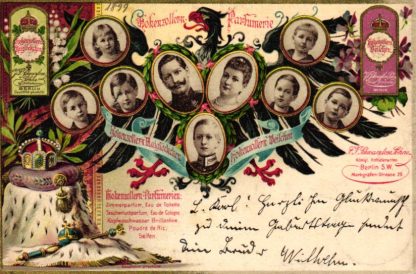 1899
Hohenzollern-Parfümerie
Hohenzollern Maiglöckchen
Hohenzollern Veilchen
BERLIN
Hohenzollern-Parfümerien:
Zimmerparfum, Eau de Toilette
Taschentuchparfum, Eau de Cologne
Kopfwaschwasser-Brillantine
Poudre de Riz,
Seifen
Königl. Hoflieferanten
Berlin S.W.
Markgrafen-Strasse 29
L. Karl! Herzlichen Glückwunsch
zu deinem Geburtstage sendet
dein Bruder Wilhelm.